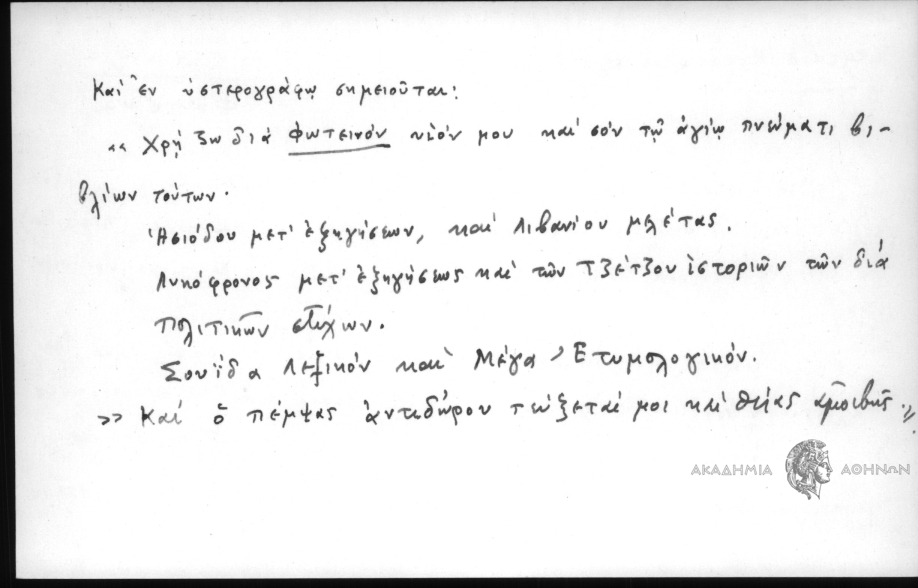 Καὶ ἐν ὑστερογράφῳ σημειοῦται:
«Χρῄζω διὰ Φωτεινὸν υἱόν μου καὶ σὸν τῷ ἁγίῳ πνεύματι βι-
βλίων τούτων.
Ἡσιόδου μετ' ἐξηγήσεων, καὶ Λιβανίου μελέτας.
Λυκόφρονος μετ' ἐξηγήσεως καὶ τῶν Τζέτζου ἱστοριῶν τῶν διὰ
πολιτικῶν στίχων.
Σουΐδα Λεξικὸν καὶ Μέγα Ἐτυμολογικόν.
>> Καὶ ὁ πέμψας ἀντιδώρου τεύξεταί μοι καὶ θείας ἀμοιβῆς.»
ΑΚΑΔΗΜΙΑ ΑΘΗΝΩΝ